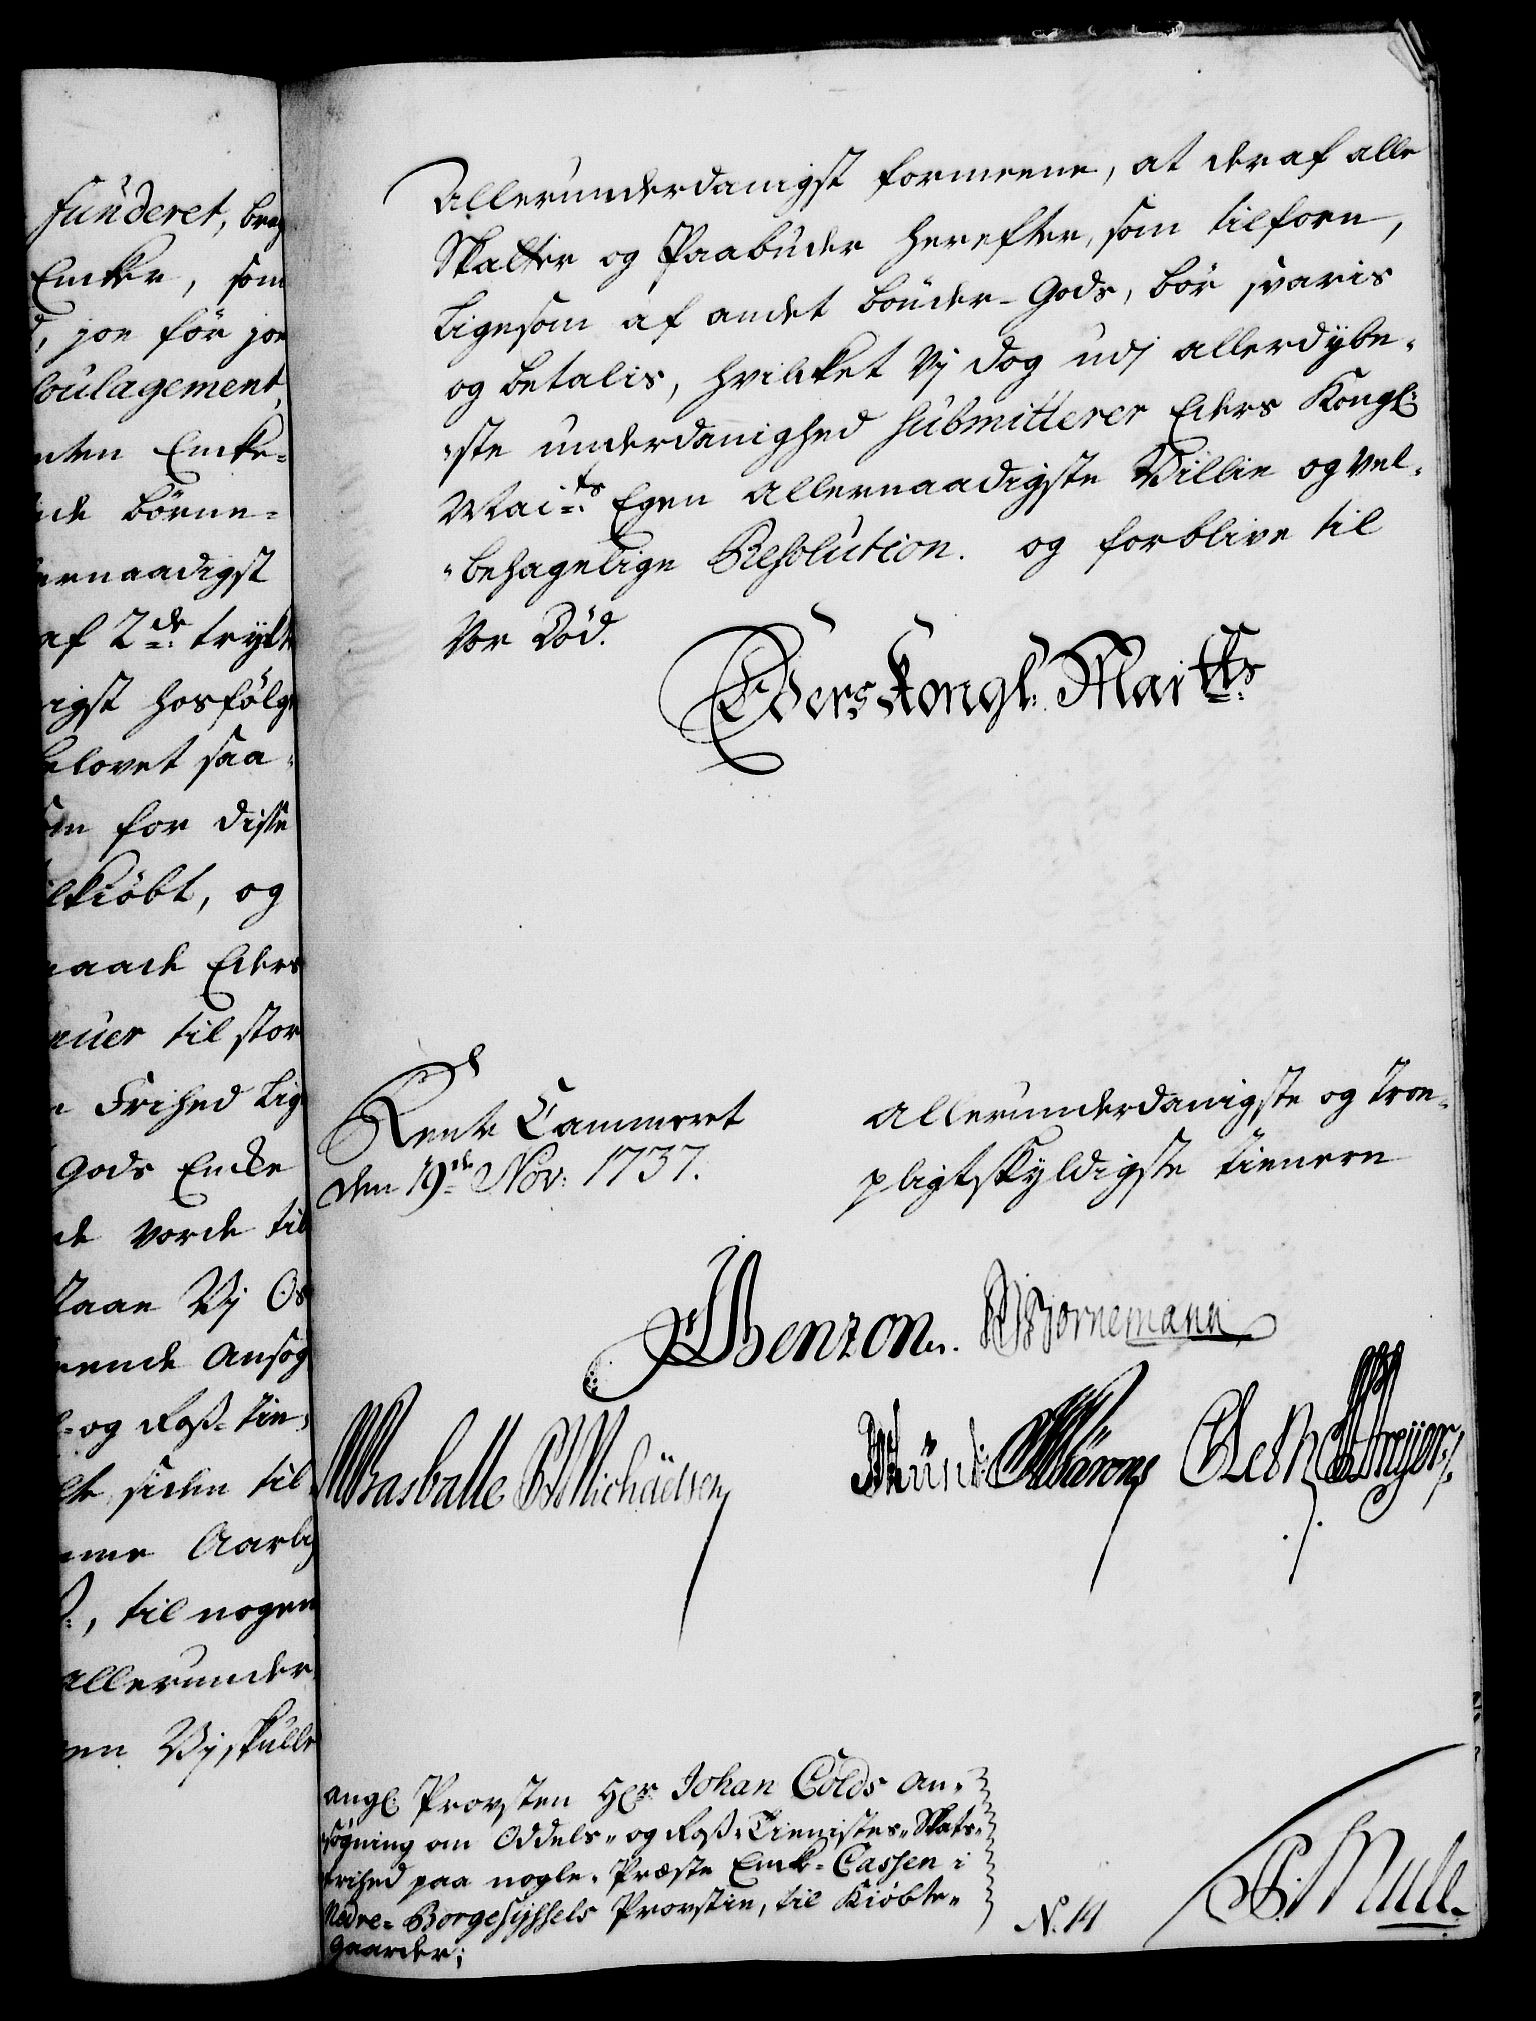 funderet, breg
Encker, som
, jon før jon
oulagement,
nten Encke-
nde børne-
ernaadigst
af 2de trykte
igst hosfølg
belovet saa-
for disse
ilkiøbt, og
naade Eders
nuer til stor
Frihed lig
Gods Encke
de vorde til
staae Vj Os
ende Ansøg
og Roß-tien
siden til
mme Aarlig
, til nogen
allerunder
en Vj skulle
Allerunderdanigst formeene, at deraf alle
Skatter og Paabuder herefter, som tilforn,
ligesom af andet bønder-Gods, bør svaris
og betalis, hvilcket Vj dog udj allerdybe-
-ste underdanighed submitterer Eders Kongl:
Maits Egen allernaadigste Villie og vel-
-behagelige Resolution. og forblive til
vor død.
Eders Kongl: Maitts
Rente Cammeret
den 19de Nov: 1737.
allerunderdanigste og troe-
pligtskyldigste tienere
Benzon. Bornemann
Basballe Michäelsen
Münd: Bärens CLeth Dreyer
angl: Provsten Hr: Johan Colds an-
søgning om Oddels- og Roß-Tienistes-Skats-
frihed paa nogle Præste Enck-Cassen i
Nedre-Borgesyssels Provstie, til kiøbte
Gaarder;
N. 14
P: Mule